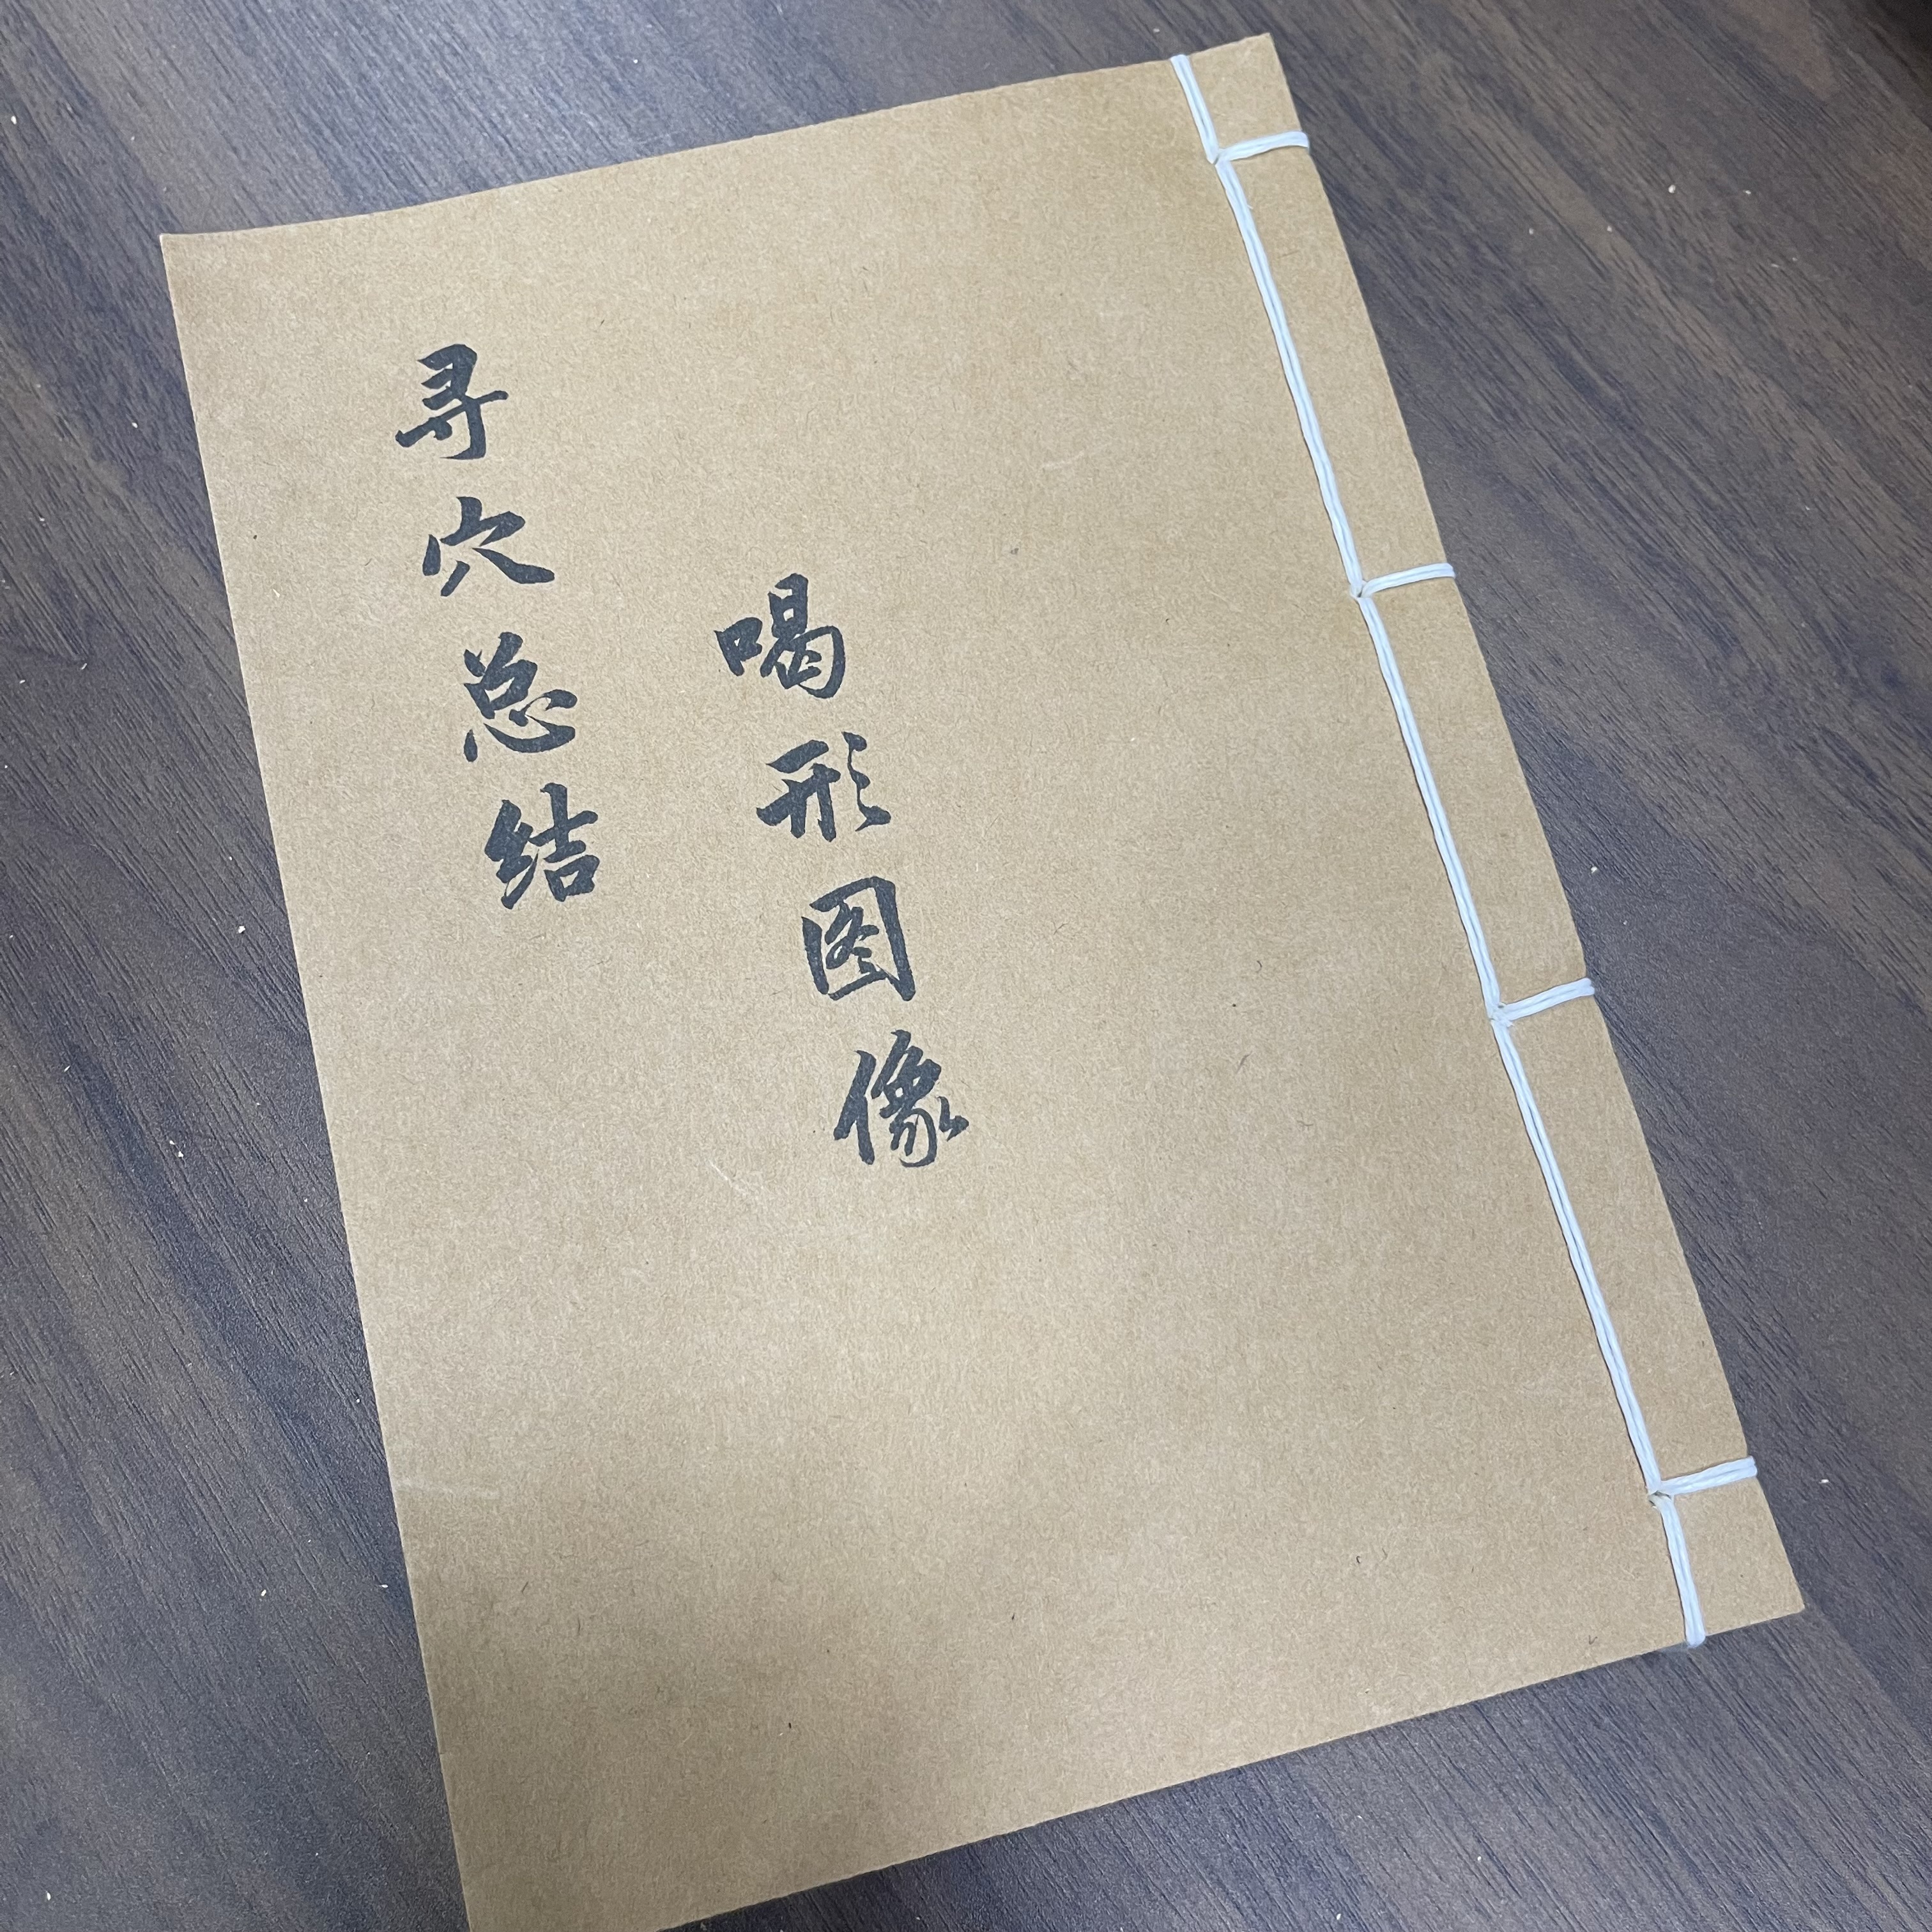 喝形图像
寻穴总结